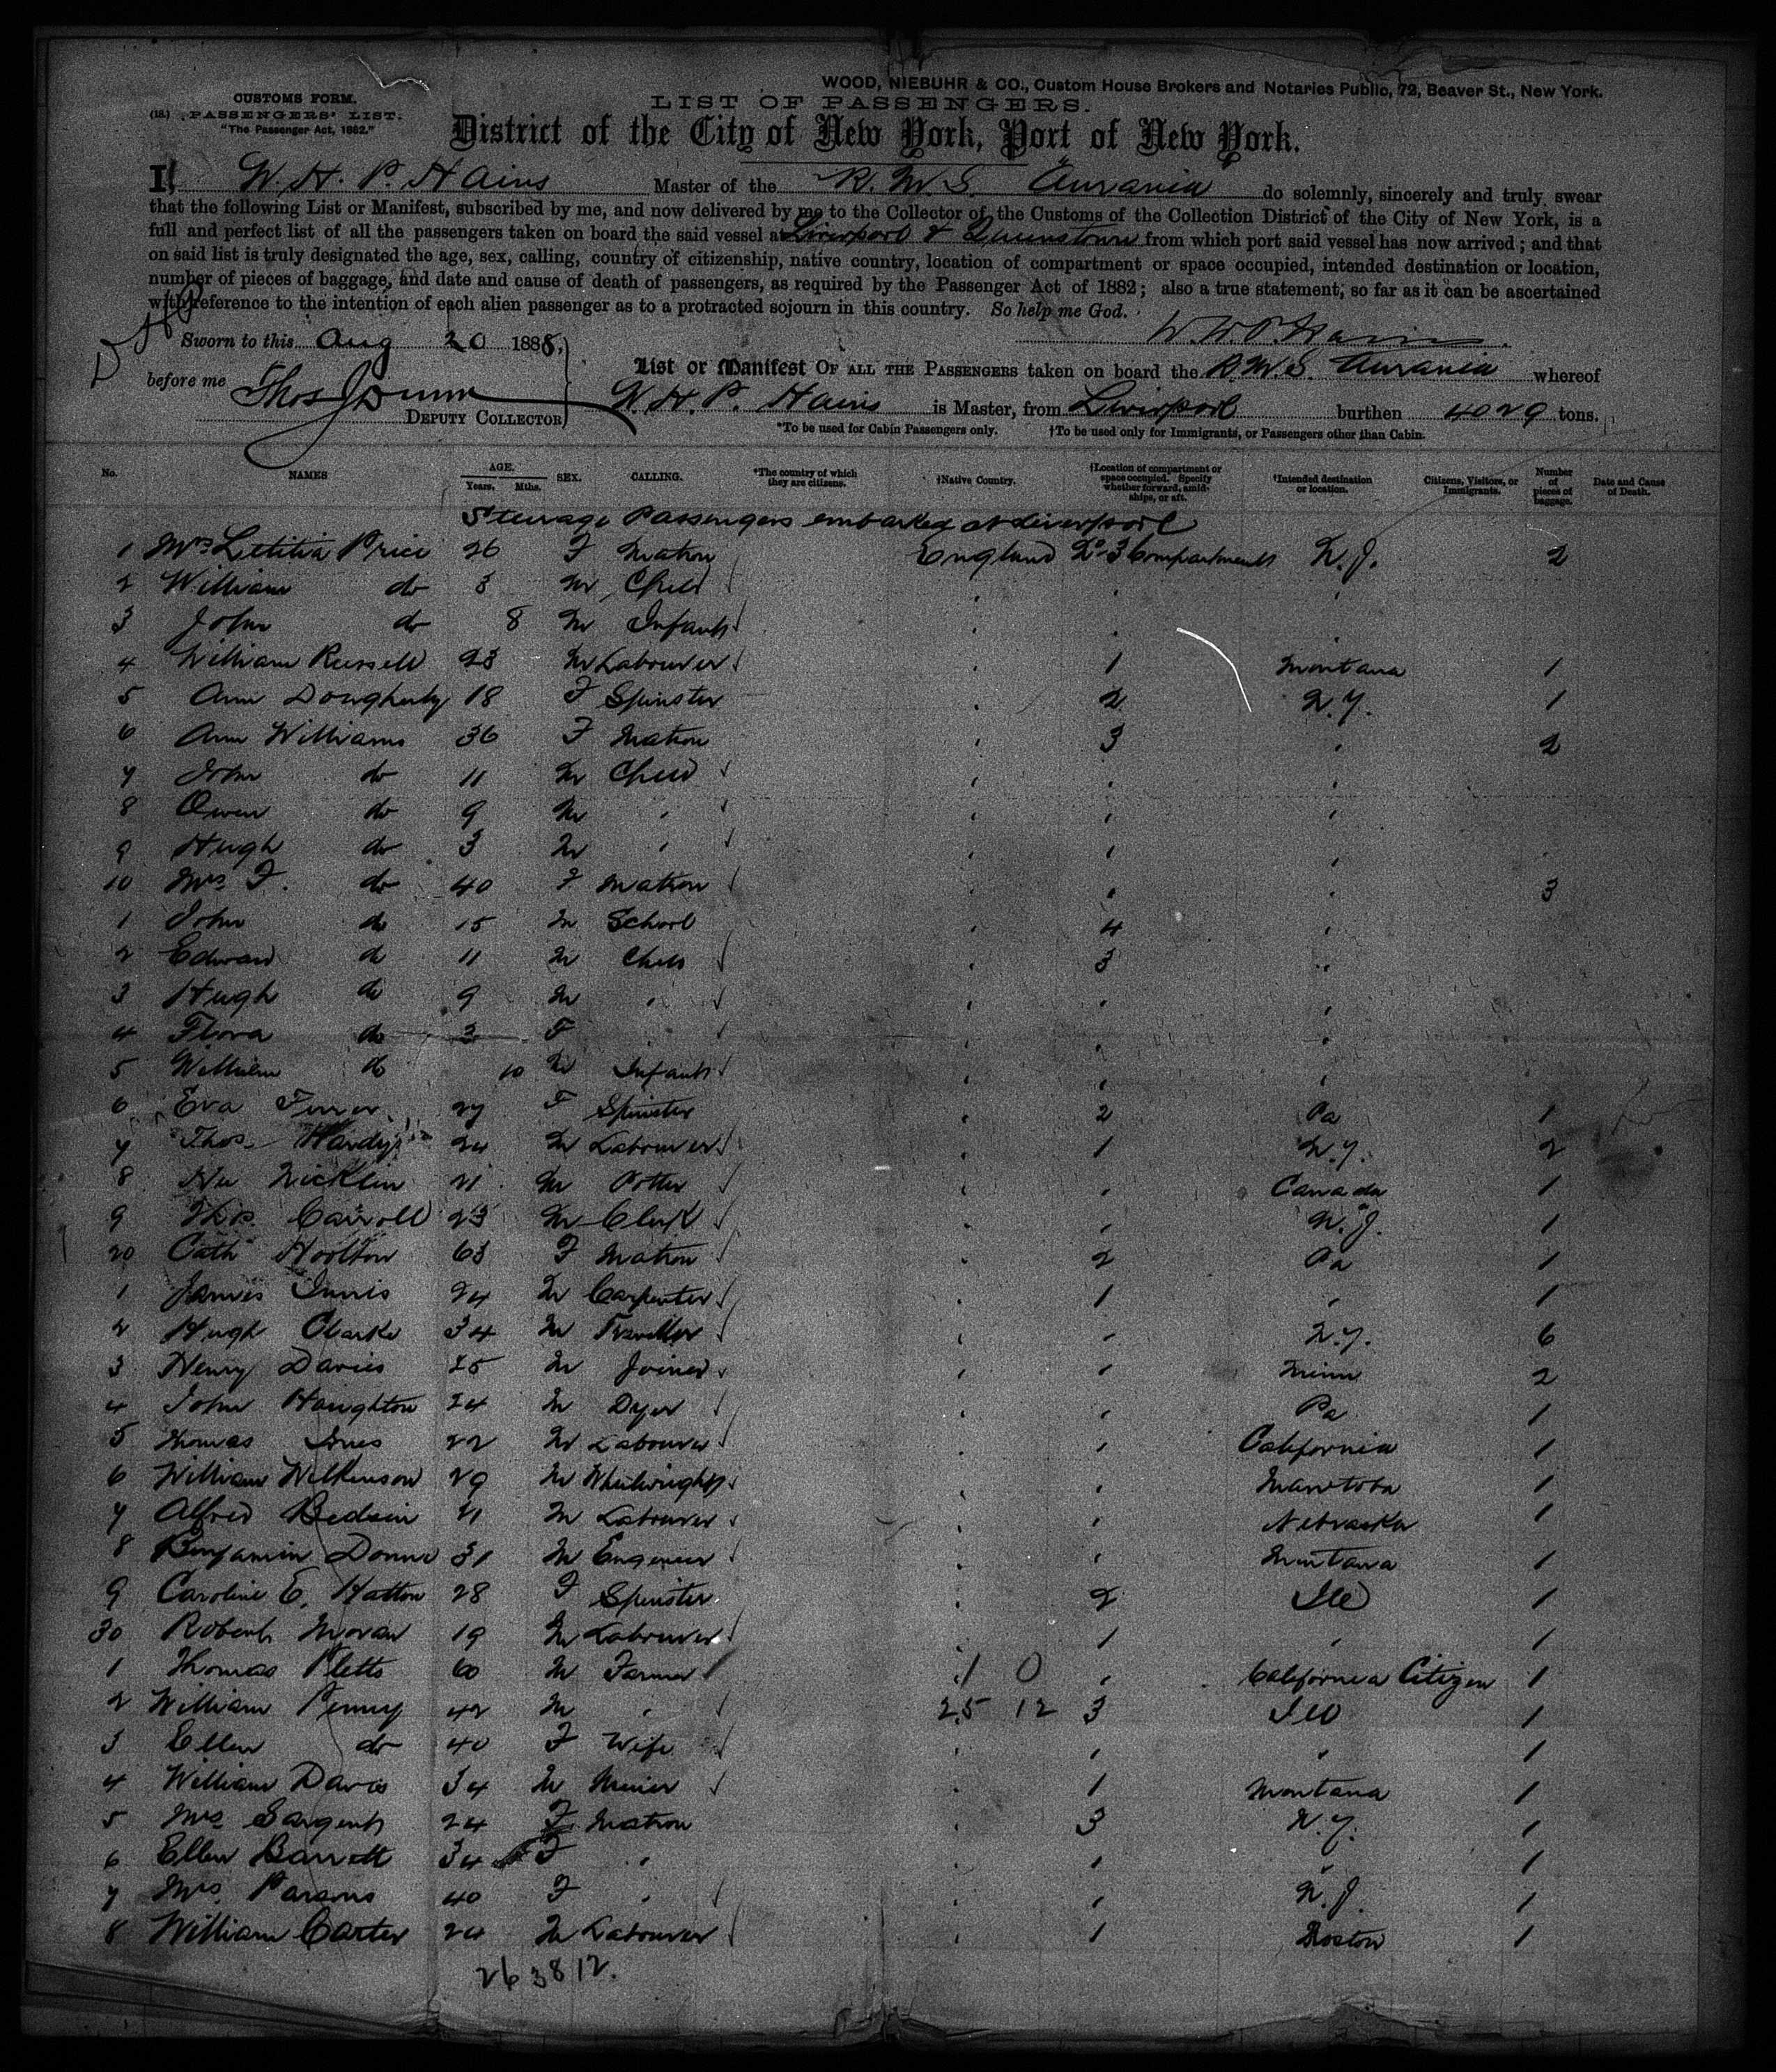 WOOD, NIEBUHR & CO., Custom House Brokers and Notaries Public, 72, Beaver St., New York.
CUSTOMS FORM.
LIST OF PASSENGERS.
(18.) PASSENGERS' LIST.
"The Passenger Act, 1882."
District of the City of New York, Port of New York.
I, W. H. P. Hains Master of the R.M.S. Aurania do solemnly, sincerely and truly swear
that the following List or Manifest, subscribed by me, and now delivered by me to the Collector of the Customs of the Collection District of the City of New York, is a
full and perfect list of all the passengers taken on board the said vessel at Liverpool & Queenstown from which port said vessel has now arrived; and that
on said list is truly designated the age, sex, calling, country of citizenship, native country, location of compartment or space occupied, intended destination or location,
number of pieces of baggage, and date and cause of death of passengers, as required by the Passenger Act of 1882; also a true statement, so far as it can be ascertained
with reference to the intention of each alien passenger as to a protracted sojourn in this country. So help me God.
W. H. P. Hains
Sworn to this Aug 20 1888,
before me Thos J Dunn
DEPUTY COLLECTOR
List or Manifest OF ALL THE PASSENGERS taken on board the R.M.S. Aurania whereof
W. H. P. Hains is Master, from Liverpool burthen 4029 tons.
*To be used for Cabin Passengers only. †To be used only for Immigrants, or Passengers other than Cabin.
No. NAMES AGE. Years. Mths. SEX. CALLING. *The country of which they are citizens. †Native Country. †Location of compartment or space occupied. Specify whether forward, amidships, or aft. †Intended destination or location. Citizens, Visitors, or Immigrants. Number of pieces of baggage. Date and Cause of Death.
Steerage Passengers embarked at Liverpool
1 Mrs Letitia Price 26 F Matron England No 3 Compartments N.J. 2
2 William do 3 M Child
3 John do 8 M Infant
4 William Russell 23 M Labourer 1 Montana 1
5 Ann Dougherty 18 F Spinster 2 N.Y. 1
6 Ann Williams 36 F Matron 3 " 2
7 John do 11 M Child
8 Owen do 9 M "
9 Hugh do 3 M "
10 Mrs F. do 40 F Matron 3
1 John do 15 M School 4
2 Edward do 11 M Child 3
3 Hugh do 9 M "
4 Flora do 3 F
5 William do 10 M Infant
6 Eva 27 F Spinster 2 Pa 1
7 Thos Hardy 24 M Labourer 1 N.Y. 2
8 Nicklin 21 M Potter Canada 1
9 Thos. Carroll 23 M Clerk N.J. 1
20 Cath 63 F Matron 2 Pa 1
1 James Innis 24 M Carpenter 1 " 1
2 Hugh Clarke 34 M Traveller N.Y. 6
3 Henry Davies 25 M Joiner Minn 2
4 John Haughton 24 M Dyer Pa 1
5 Thomas Jones 22 M Labourer California 1
6 William Wilkinson 29 M Wheelwright Manitoba 1
7 Alfred 21 M Labourer Nebraska 1
8 Benjamin 31 M Engineer Montana 1
9 Caroline E. Hatton 28 F Spinster 2 Ill 1
30 Robert Moran 19 M Labourer 1 " 1
1 Thomas Pletts 60 M Farmer 1 0 California Citizen 1
2 William Penny 42 M " 25 12 3 Ill 1
3 Ellen do 40 F Wife " 1
4 William Davis 34 M Miner 1 Montana 1
5 Mrs Sargent 24 F Matron 3 N.Y. 1
6 Ellen Barrett 34 F " " 1
7 Mrs. Parsons 40 F " N.J. 1
8 William Carter 24 M Labourer 1 Boston 1
26 38 12.